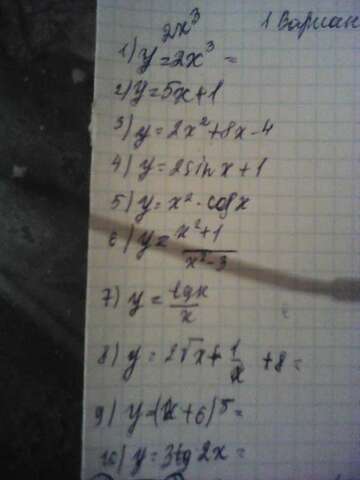 2x³
1 Вариан
1) y=2x³ =
2) y=5x+1
3) y=2x²+8x-4
4) y=2sinx+1
5) y=x²·cosx
6) y=x²+1/x²-3
7) y=tgx/x
8) y=2√x+1/x+8=
9) y=(x+6)⁵=
10) y=3tg2x=